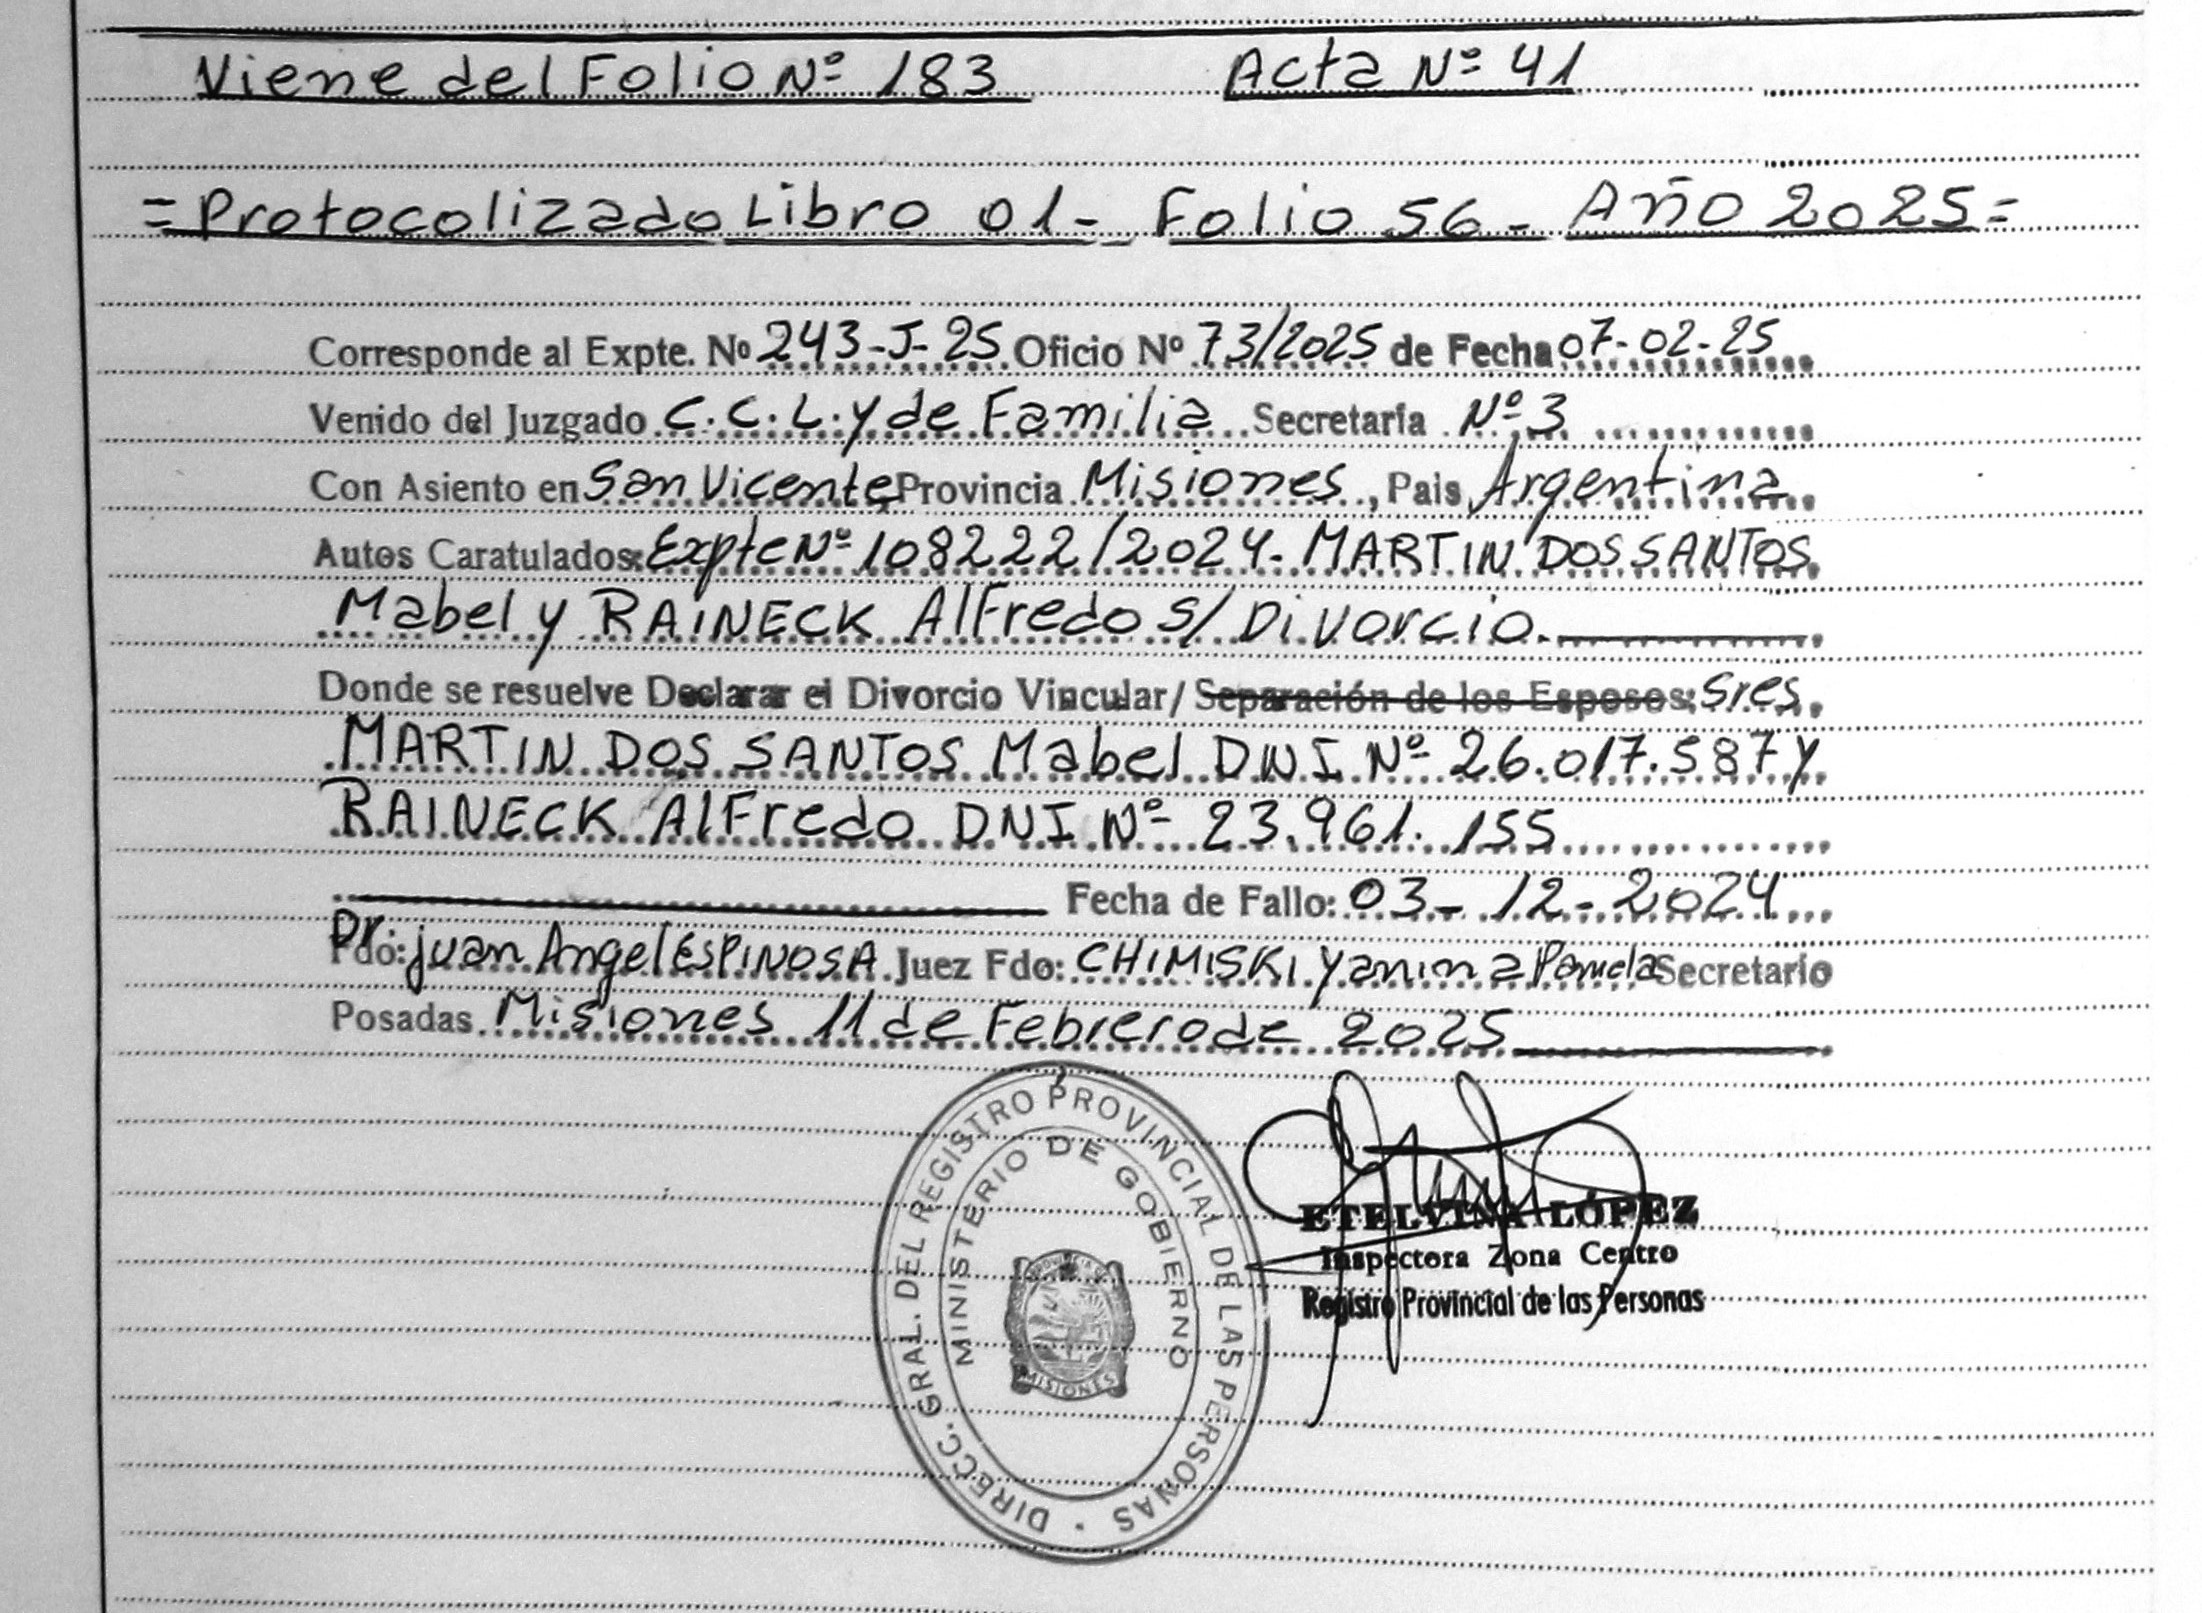 Viene del Folio Nº 183 Acta Nº 41
= Protocolizado Libro 01 - Folio 56 - Año 2025 =
Corresponde al Expte. Nº 243-J-25 Oficio Nº 73/2025 de Fecha 07-02-25
Venido del Juzgado C.C.L. y de Familia Secretaría Nº 3
Con Asiento en San Vicente Provincia Misiones, Pais Argentina
Autos Caratulados: Expte Nº 108222/2024- MARTIN DOS SANTOS
Mabel y RAINECK Alfredo s/ Divorcio.
Donde se resuelve Declarar el Divorcio Vincular/ Separación de los Esposos: Sres.
MARTIN DOS SANTOS Mabel DNI Nº 26.017.587 y
RAINECK Alfredo DNI Nº 23.961.155
Fecha de Fallo: 03-12-2024
Fdo: Dr. Juan Angel ESPINOSA Juez Fdo: CHIMISKI Yanina Pamela Secretario
Posadas Misiones 11 de Febrero de 2025
DIRECC. GRAL. DEL REGISTRO PROVINCIAL DE LAS PERSONAS
MINISTERIO DE GOBIERNO
PROVINCIA DE
MISIONES
ETELVINA LÓPEZ
Inspectora Zona Centro
Registro Provincial de las Personas